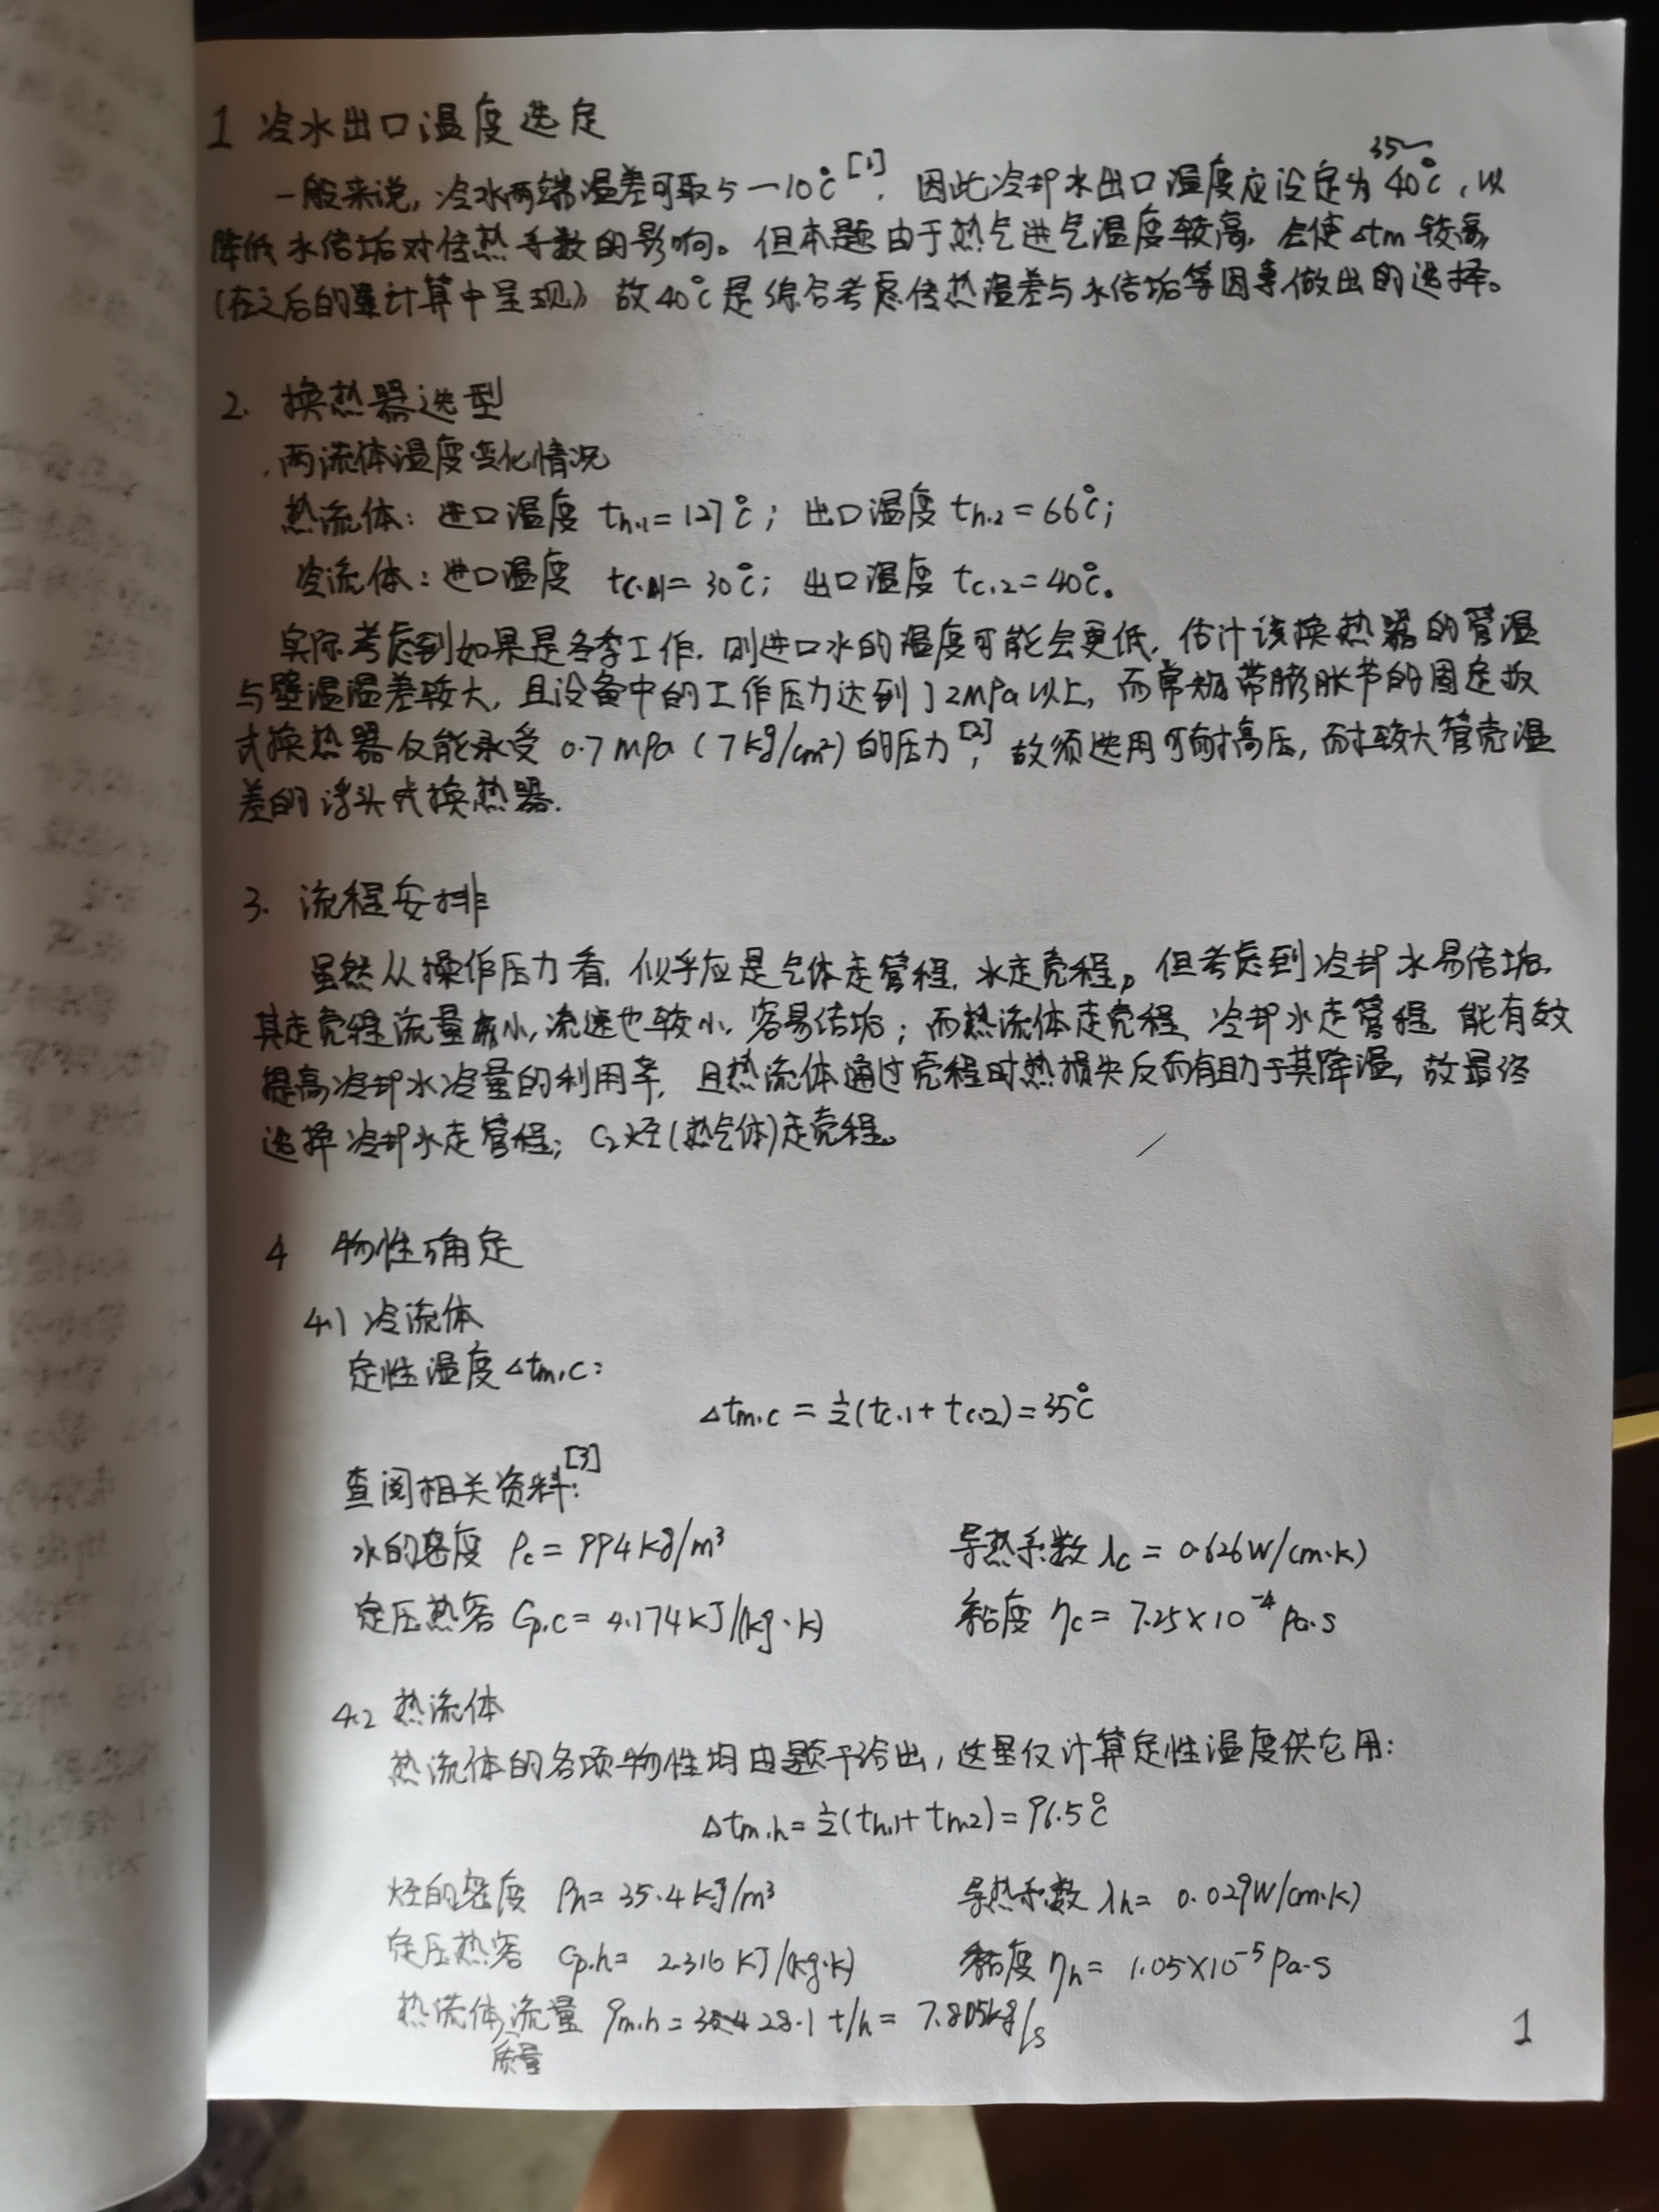 1 冷水出口温度选定
35~
一般来说,冷水两端温差可取5—10℃[1],因此冷却水出口温度应设定为40℃,以
降低水结垢对传热系数的影响。但本题由于热气进气温度较高,会使Δtm较高
(在之后的计算中呈现)故40℃是综合考虑传热温差与水结垢等因素做出的选择。
2. 换热器选型
两流体温度变化情况
热流体:进口温度 th.1=127℃;出口温度 th.2=66℃;
冷流体:进口温度 tc.1=30℃;出口温度 tc.2=40℃。
实际考虑到如果是冬季工作,则进口水的温度可能会更低,估计该换热器的管温
与壁温温差较大,且设备中的工作压力达到了2MPa以上,而常规带膨胀节的固定板
式换热器仅能承受 0.7MPa(7kg/cm²)的压力[2],故须选用可耐高压,耐较大管壳温
差的浮头式换热器.
3. 流程安排
虽然从操作压力看,似乎应是气体走管程,水走壳程。但考虑到冷却水易结垢,
其走壳程流量减小,流速也较小,容易结垢;而热流体走壳程、冷却水走管程,能有效
提高冷却水冷量的利用率,且热流体通过壳程时热损失反而有助于其降温,故最终
选择冷却水走管程;C₂烃(热气体)走壳程。
4 物性确定
4.1 冷流体
定性温度Δtm,c:
Δtm.c=½(tc.1+tc.2)=35℃
查阅相关资料[3]:
水的密度 ρc=994kg/m³ 导热系数 λc=0.626W/(m·K)
定压热容 Cp.c=4.174kJ/(kg·K) 黏度 ηc=7.25×10⁻⁴Pa·s
4.2 热流体
热流体的各项物性均由题干给出,这里仅计算定性温度供它用:
Δtm.h=½(th.1+th.2)=96.5℃
烃的密度 ρh=35.4kg/m³ 导热系数 λh=0.029W/(m·K)
定压热容 Cp.h=2.316KJ/(kg·K) 黏度 ηh=1.05×10⁻⁵Pa·s
热流体流量 qm.h=28.1t/h=7.805kg/s
质量
1